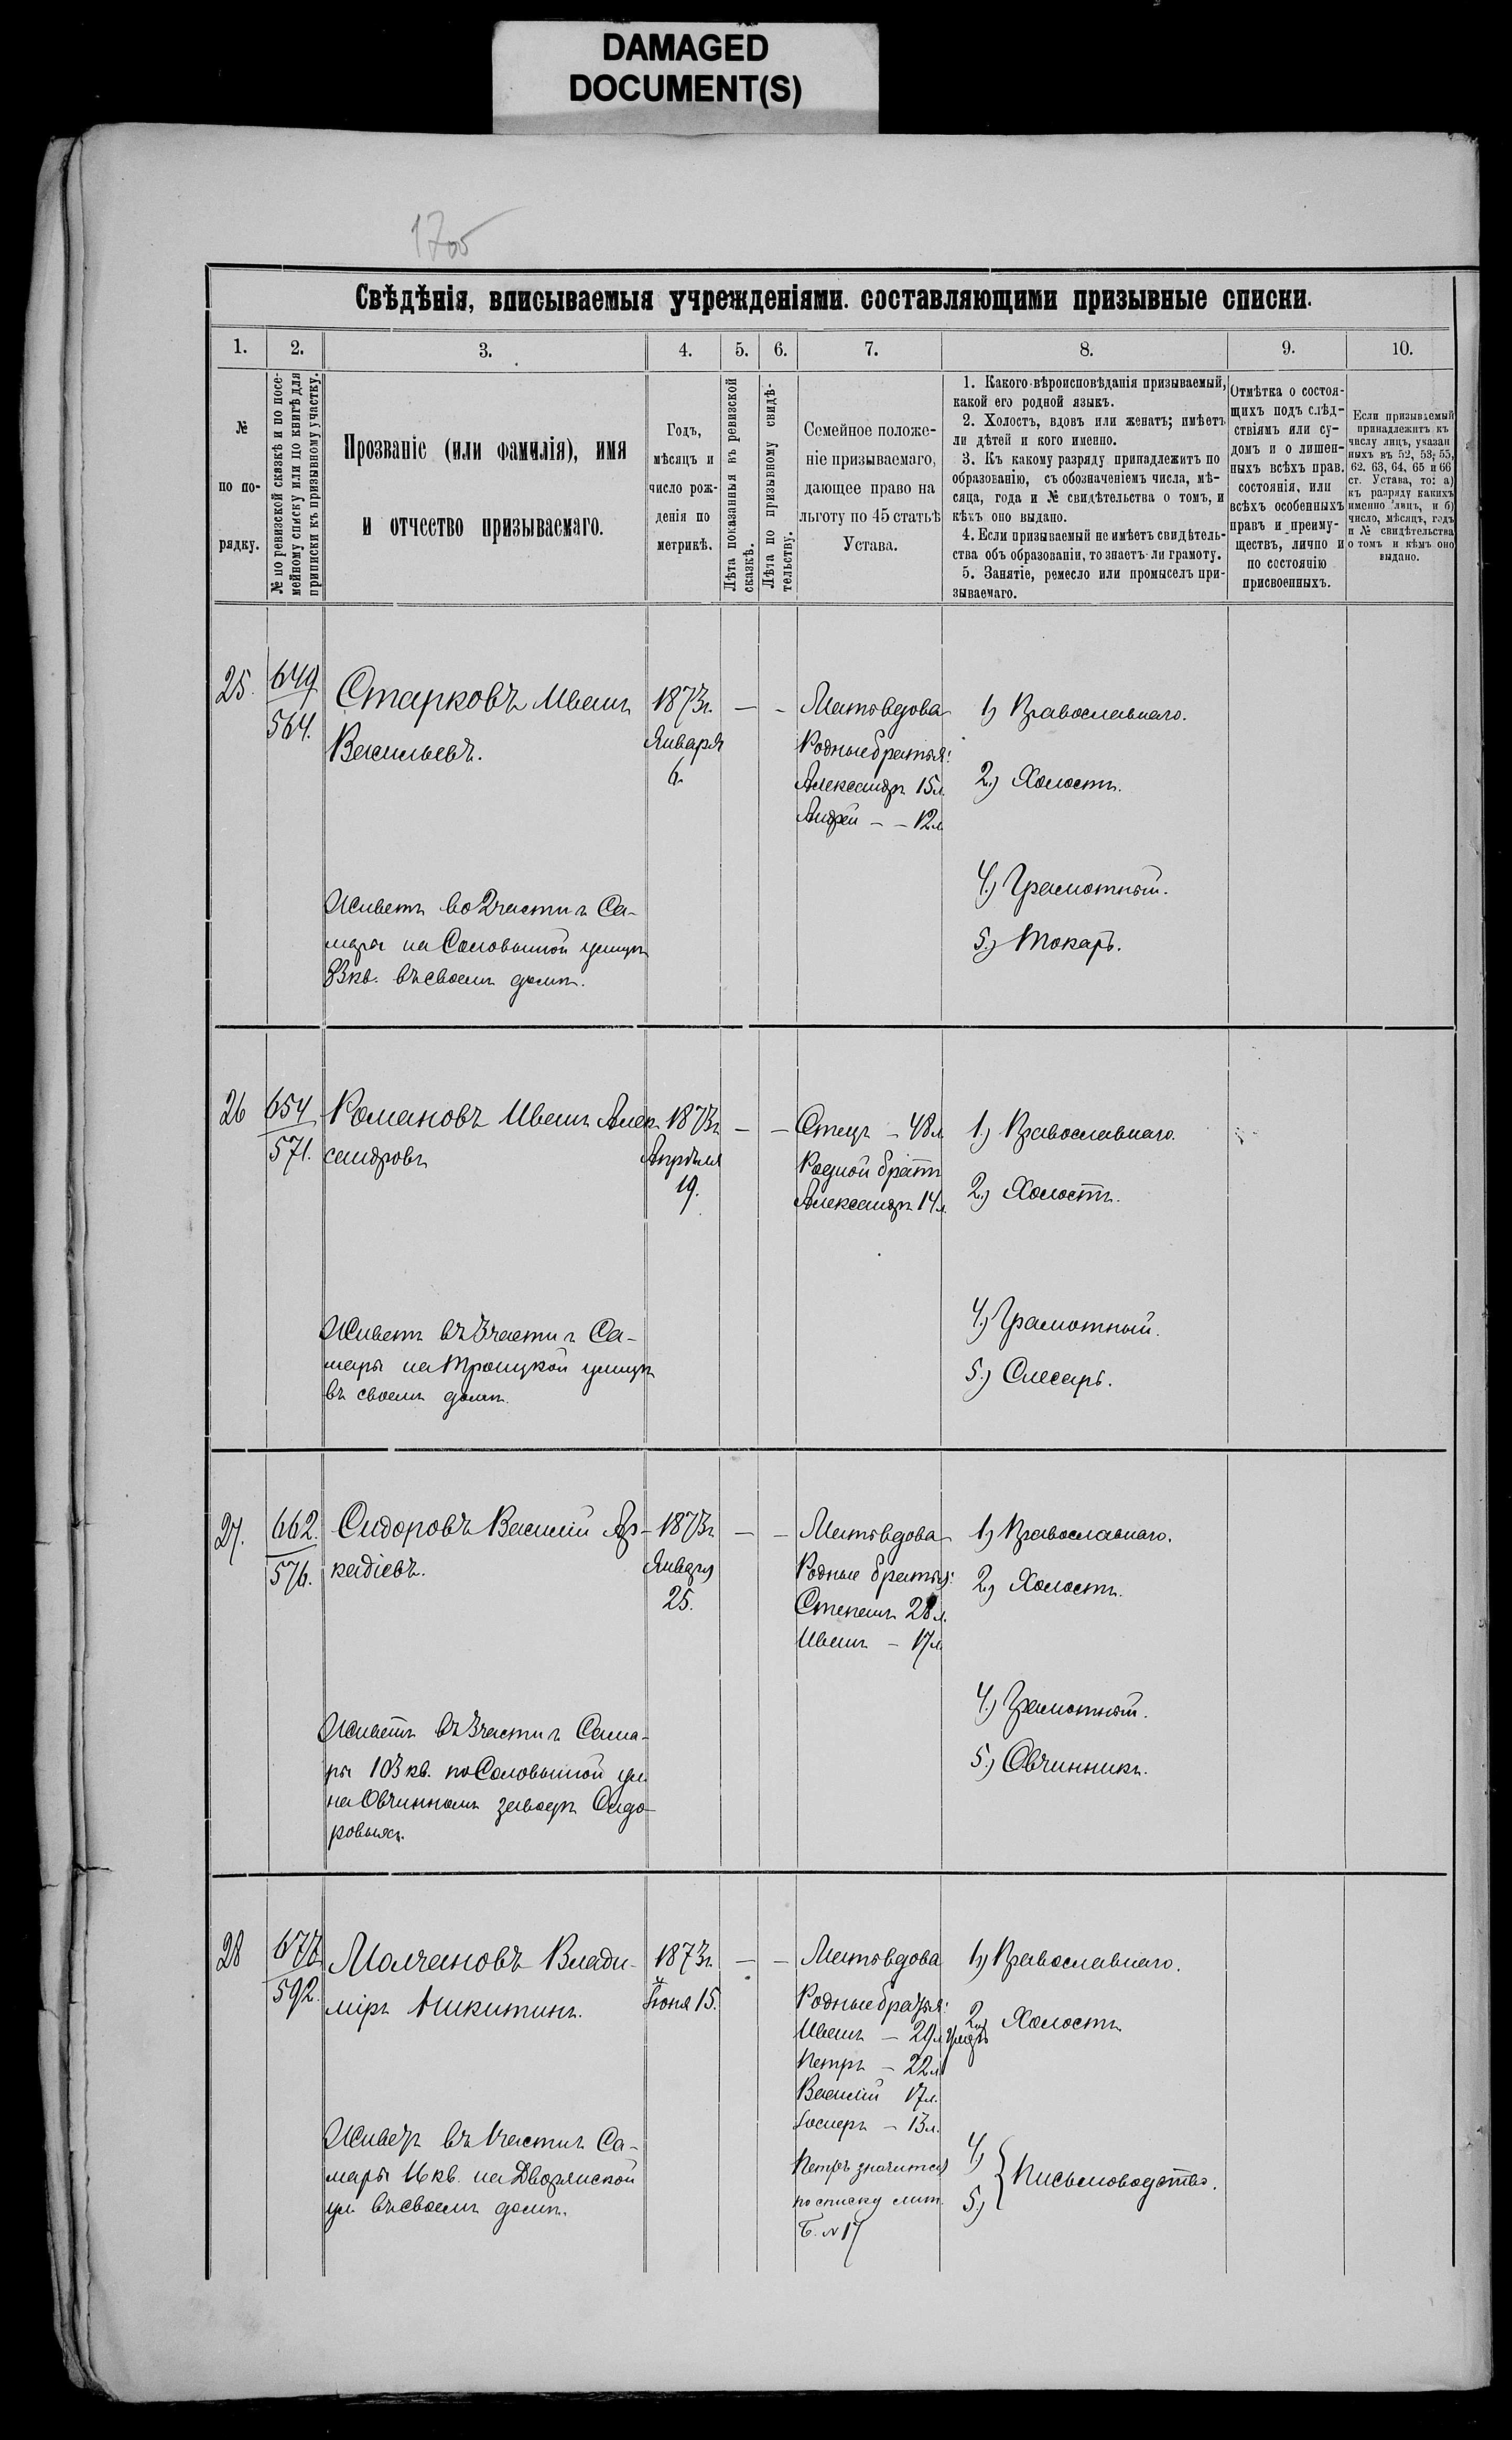 DAMAGED
DOCUMENT(S)
1705
Свѣдѣнія, вписываемыя учрежденіями. составляющими призывные списки.
1. 2. 3. 4. 5. 6. 7. 8. 9. 10.
№
по по-
рядку.
№ по ревизской сказкѣ и по посе-
мейному списку или по книгѣ для
приписки къ призывному участку.
Прозваніе (или фамилія), имя
и отчество призываемаго.
Годъ,
мѣсяцъ и
число рож-
денія по
метрикѣ.
Лѣта показанныя въ ревизской
сказкѣ.
Лѣта по призывному свидѣ-
тельству.
Семейное положе-
ніе призываемаго,
дающее право на
льготу по 45 статьѣ
Устава.
1. Какого вѣроисповѣданія призываемый,
какой его родной языкъ.
2. Холостъ, вдовъ или женатъ; имѣетъ
ли дѣтей и кого именно.
3. Къ какому разряду принадлежитъ по
образованію, съ обозначеніемъ числа, мѣ-
сяца, года и № свидѣтельства о томъ, и
кѣмъ оно выдано.
4. Если призываемый не имѣетъ свидѣтель-
ства объ образованіи, то знаетъ ли грамоту.
5. Занятіе, ремесло или промыселъ при-
зываемаго.
Отмѣтка о состоя-
щихъ подъ слѣд-
ствіямъ или су-
домъ и о лишен-
ныхъ всѣхъ прав.
состоянія, или
всѣхъ особенныхъ
правъ и преиму-
ществъ, лично и
по состоянію
присвоенныхъ.
Если призываемый
принадлежитъ къ
числу лицъ, указан
ныхъ въ 52, 53, 55,
62. 63, 64, 65 и 66
ст. Устава, то: а)
къ разряду какихъ
именно лицъ, и б)
число, мѣсяцъ, годъ
и № свидѣтельства
о томъ и кѣмъ оно
выдано.
25.
649
564.
Старковъ Иванъ
Васильевъ.
Живетъ во 2 части г. Са-
мары на Соловьиной улицѣ
83 кв. въ своемъ домѣ.
1873 г.
Января
6.
— -
Мать вдова
Родные братья:
Александръ 15 л.
Андрей — — 12 л.
1) Православнаго.
2.) Холостъ.
4.) Грамотный.
5.) Токарь.
26
654
571.
Романовъ Иванъ Алек-
сандровъ
Живетъ въ 3 части г. Са-
мары на Троицкой улицѣ
въ своемъ домѣ.
1873 г.
Апрѣля
19.
— —
Отецъ — 48 л.
Родной братъ
Александръ 14 л.
1.) Православнаго.
2.) Холостъ.
4.) Грамотный.
5.) Слесарь.
27.
662.
576.
Сидоровъ Василій Ар-
кадіевъ.
Живетъ въ 3 части г. Сама-
ры 103 кв. по Соловьиной ул.
на Овчинномъ заводѣ Сидо-
ровыхъ.
1873 г.
Января
25.
— —
Мать вдова
Родные братья:
Степанъ 28 л.
Иванъ — 17 л.
1) Православнаго.
2) Холостъ.
4.) Грамотный.
5.) Овчинникъ.
28
592.
Молчановъ Влади-
міръ Никитинъ.
Живетъ въ 1 части г. Са-
мары 16 кв. на Дворянской
ул. въ своемъ домѣ.
1873 г.
Іюня 15.
— —
Мать вдова
Родные братья:
Иванъ — 29 л.
Петръ — 22 л.
Василій 17 л.
— 13 л.
Петръ значится
по списку лит.
Б. № 17
1) Православнаго.
2.) Холостъ.
4)
5.)
Письмоводство.